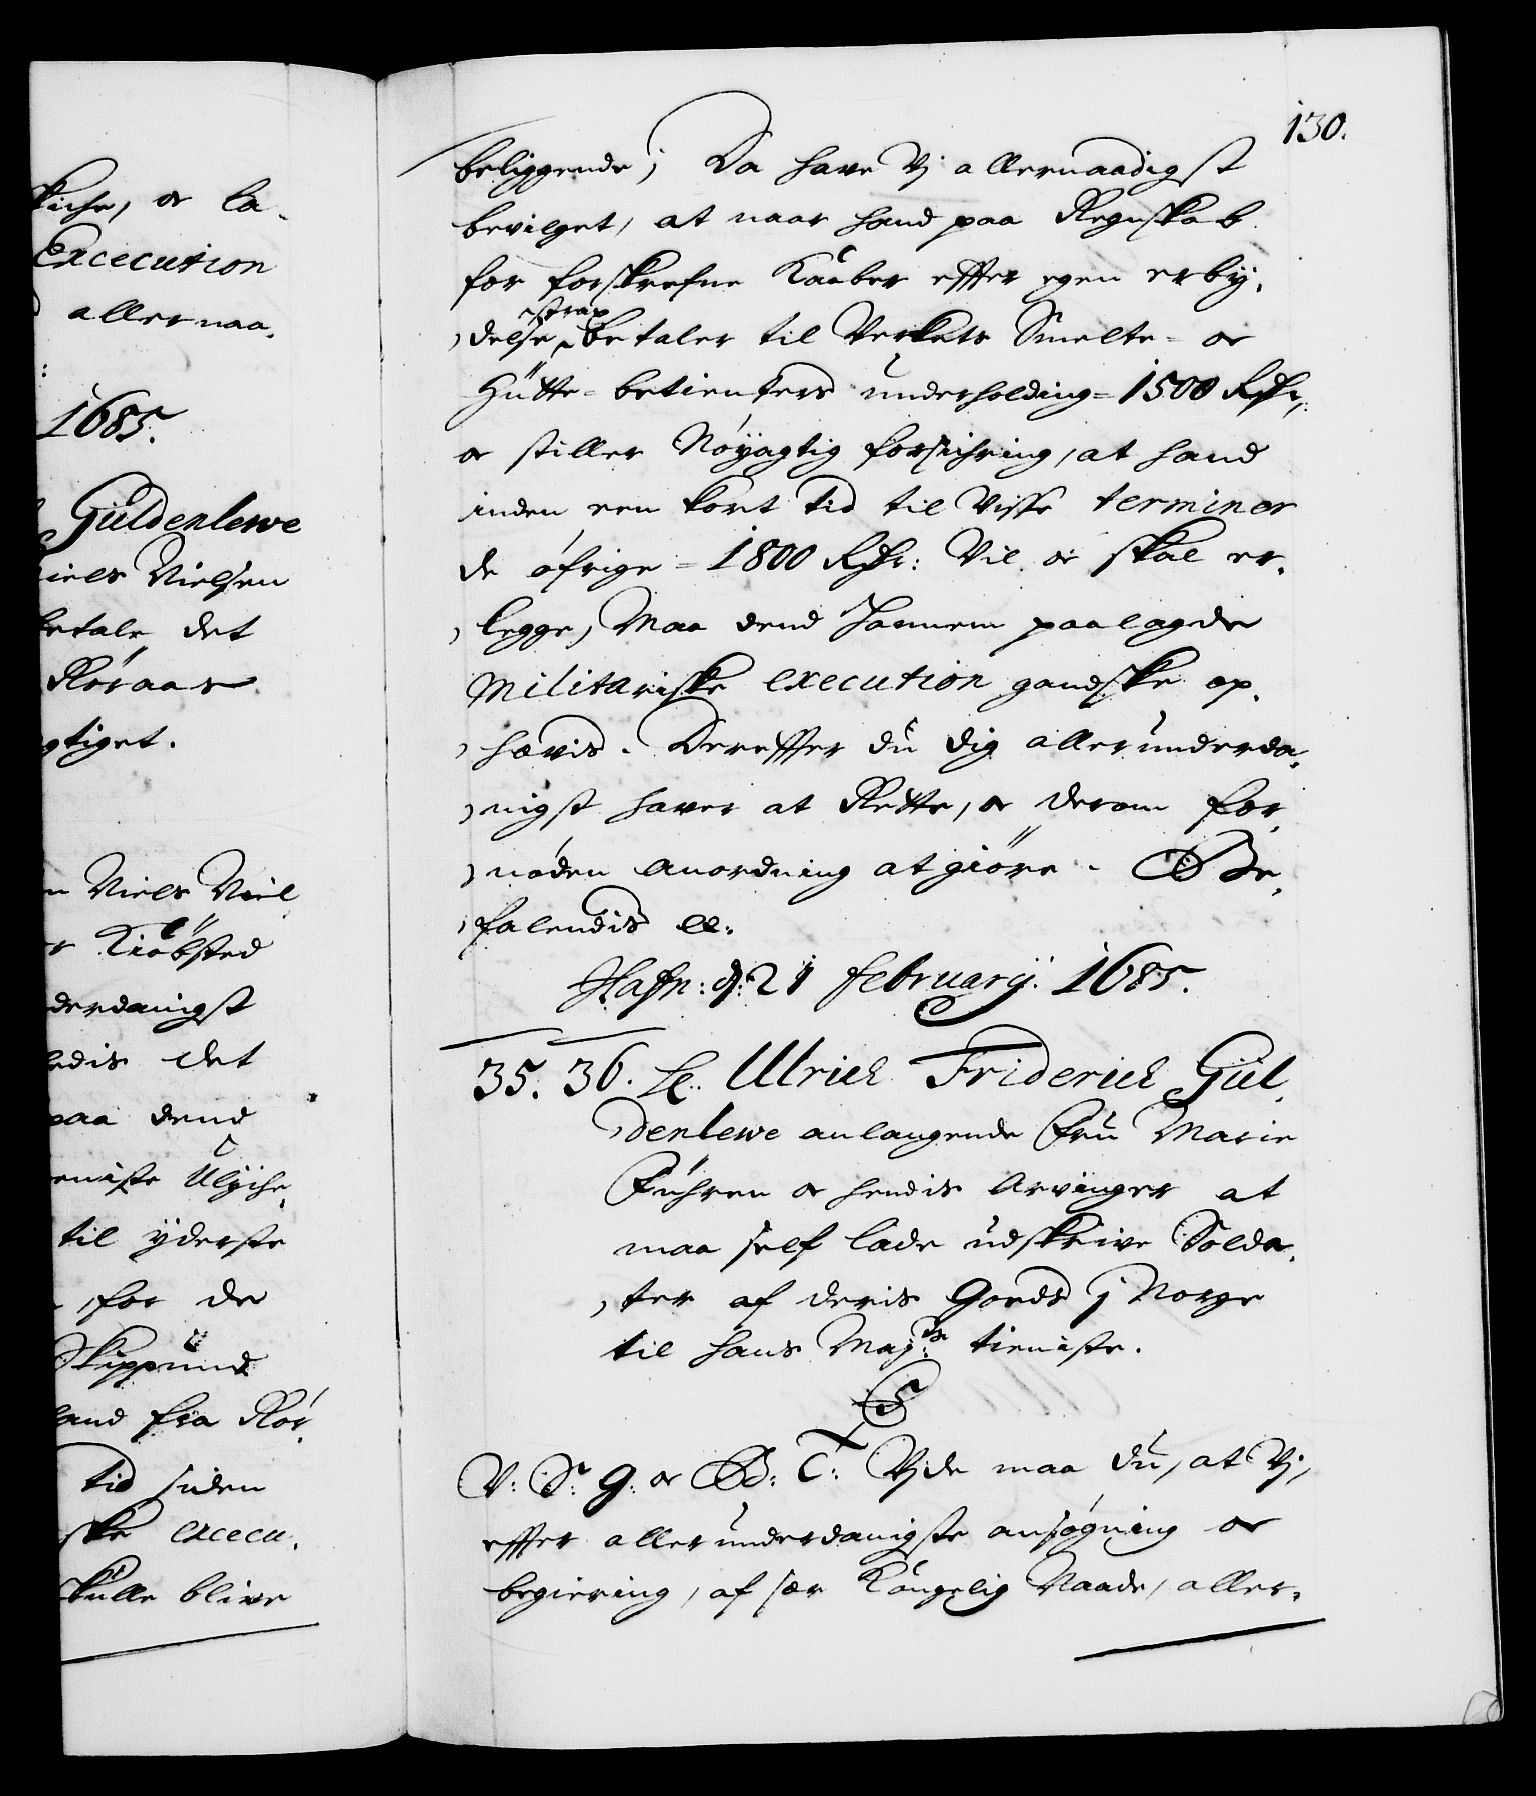 kiche, oc la-
Excecution
allernaa-
1685.
Güldenlewe
Niels Nielsen
betale det
Röraas
gtiget.
Niels Niel
Kiöbsted
derdanigst
ledis det
paa dend
til yderste
for de
Skippund
fra Rör
tid siden
ske excecu-
skulle blive
130.
beliggende; Da have Vj allernaadigst
bevilget, at naar hand paa Regnskab
for forskrefne Kaaber effter egen erby-
delse strax betaler til Verkets Smelte- oc
Hütte-betienters underholding 1500 Rdr,
oc stiller Nöyagtig forsichring, at hand
inden een kort tid til Visse terminer
de öfrige 1800 Rdr: Vil oc skal er-
legge, Maa dend hannem paalagde
Militariske execution gandske op-
hævis. Dereffter du dig allerunderda-
nigst haver at Rette, oc derom for-
nøden anordning at giöre. Be-
falendis etc.
Hafn: d: 21 february. 1685.
35. 36. Ulrich Friderich Gül-
denlewe anlangende Fru Marie
Führen oc hendis Arvinger at
maa self lade udskrive Solda-
ter af deris Goeds j Norge
til hans May:ts tieniste.
C5
V: S: G: oc B: T: Vjde maa du, at Vj,
effter allerunderdanigste ansögning oc
begiering, af sær Kongelig Naade, aller-